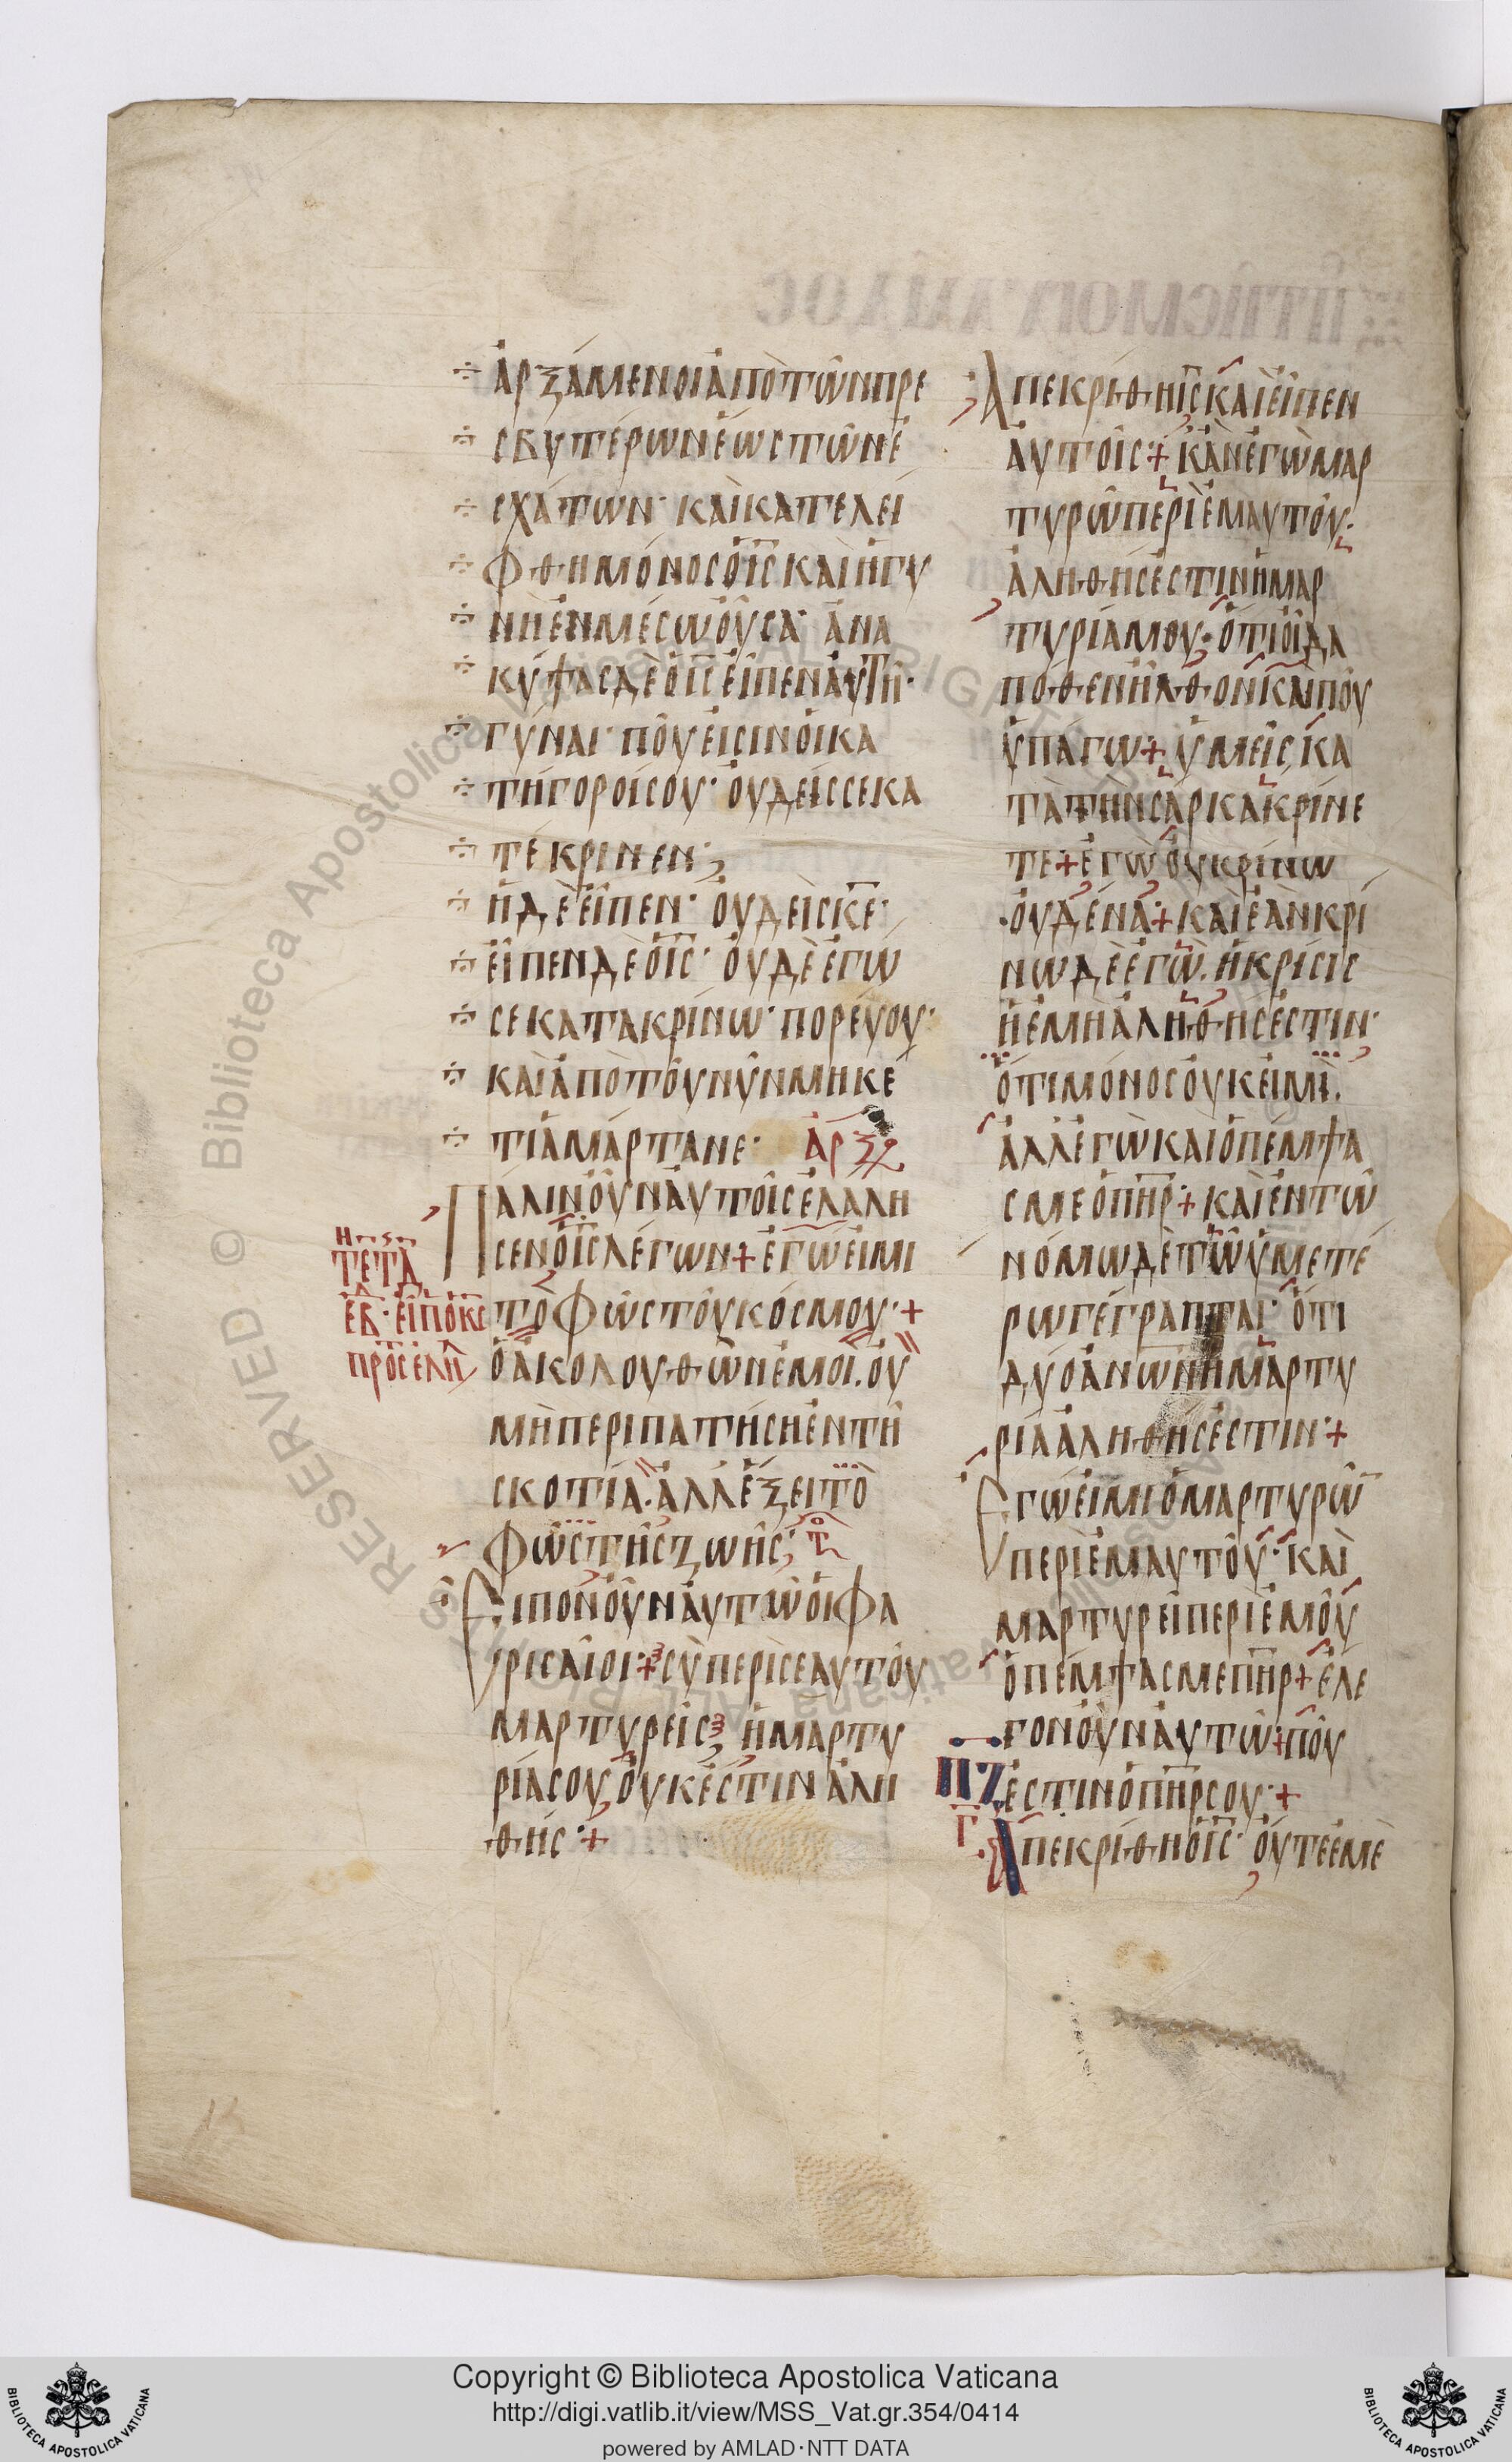 ἀρξάμενοι ἀπὸ τῶν πρε
σβυτέρων ἕως τῶν ἐ
σχάτων· καὶ κατελεί
φθη μόνος ὁ ῙΣ καὶ ἡ γυ
νὴ ἐν μέσω οὖσα· ἀνα
κύψας δὲ ὁ ῙΣ εἶπεν αὐτῆ·
γύναι· ποῦ εἰσιν οἱ κα
τήγοροί σου· οὐδείς σε κα
τέκρινεν;
ἡ δὲ εἶπεν· οὐδεὶς Κ̄Ε̄·
εἶπεν δὲ ὁ ῙΣ· οὐδὲ ἐγὼ
σε κατακρίνω· πορεύου·
καὶ ἀπὸ τοῦ νῦν μηκέ
τι ἁμάρτανε· ἀρξ
Πάλιν οὖν αὐτοῖς ἐλάλη
σεν ὁ ῙΣ λέγων + ἐγώ εἰμι
τὸ φῶς τοῦ κόσμου· +
ὁ ἀκολουθῶν ἐμοί. οὐ
μὴ περιπατήση ἐν τῆ
σκοτία. ἀλλ ἕξει τὸ
φῶς τῆς ζωῆς·
Εἶπον οὖν αὐτῶ οἱ φα
ρισαῖοι + σὺ περὶ σεαυτοῦ
μαρτυρεῖς ἡ μαρτυ
ρία σου οὐκ ἔστιν ἀλη
θής· +
Ἀπεκρίθη ῙΣ καὶ εἶπεν
αὐτοῖς + κἂν ἐγὼ μαρ
τυρῶ περὶ ἐμαυτοῦ·
ἀληθής ἐστιν ἡ μαρ
τυρία μου· ὅτι οἶδα
πόθεν ἦλθον καὶ ποῦ
ὑπάγω + ὑμεῖς κα
τὰ τὴν σάρκα κρίνε
τε + ἐγὼ οὐ κρίνω
οὐδένα + καὶ ἐὰν κρί
νω δὲ ἐγώ. ἡ κρίσις
ἡ ἐμὴ ἀληθής ἐστιν·
ὅτι μόνος οὐκ εἰμί.
ἀλλ ἐγὼ καὶ ὁ πέμψα
ς με Π̄Η̄Ρ̄ + καὶ ἐν τῶ
νόμω δὲ τῶ ὑμετέ
ρω γέγραπται· ὅτι
δύο ἀνων ἡ μαρτυ
ρία ἀληθής ἐστιν· +
Ἐγώ εἰμι ὁ μαρτυρῶ
περὶ ἐμαυτοῦ· καὶ
μαρτυρεῖ περὶ ἐμοῦ
ὁ πέμψας με Π̄Η̄Ρ̄ + ἔλε
γον οὖν αὐτῶ + ποῦ
ἐστιν ὁ Π̄Η̄Ρ̄ σου· +
ΠΖ
Γ
Ἀπεκρίθη ὁ ῙΣ· οὔτε ἐμὲ
Copyright © Biblioteca Apostolica Vaticana
http://digi.vatlib.it/view/MSS_Vat.gr.354/0414
powered by AMLAD·NTT DATA
BIBLIOTECA APOSTOLICA VATICANA
BIBLIOTECA APOSTOLICA VATICANA